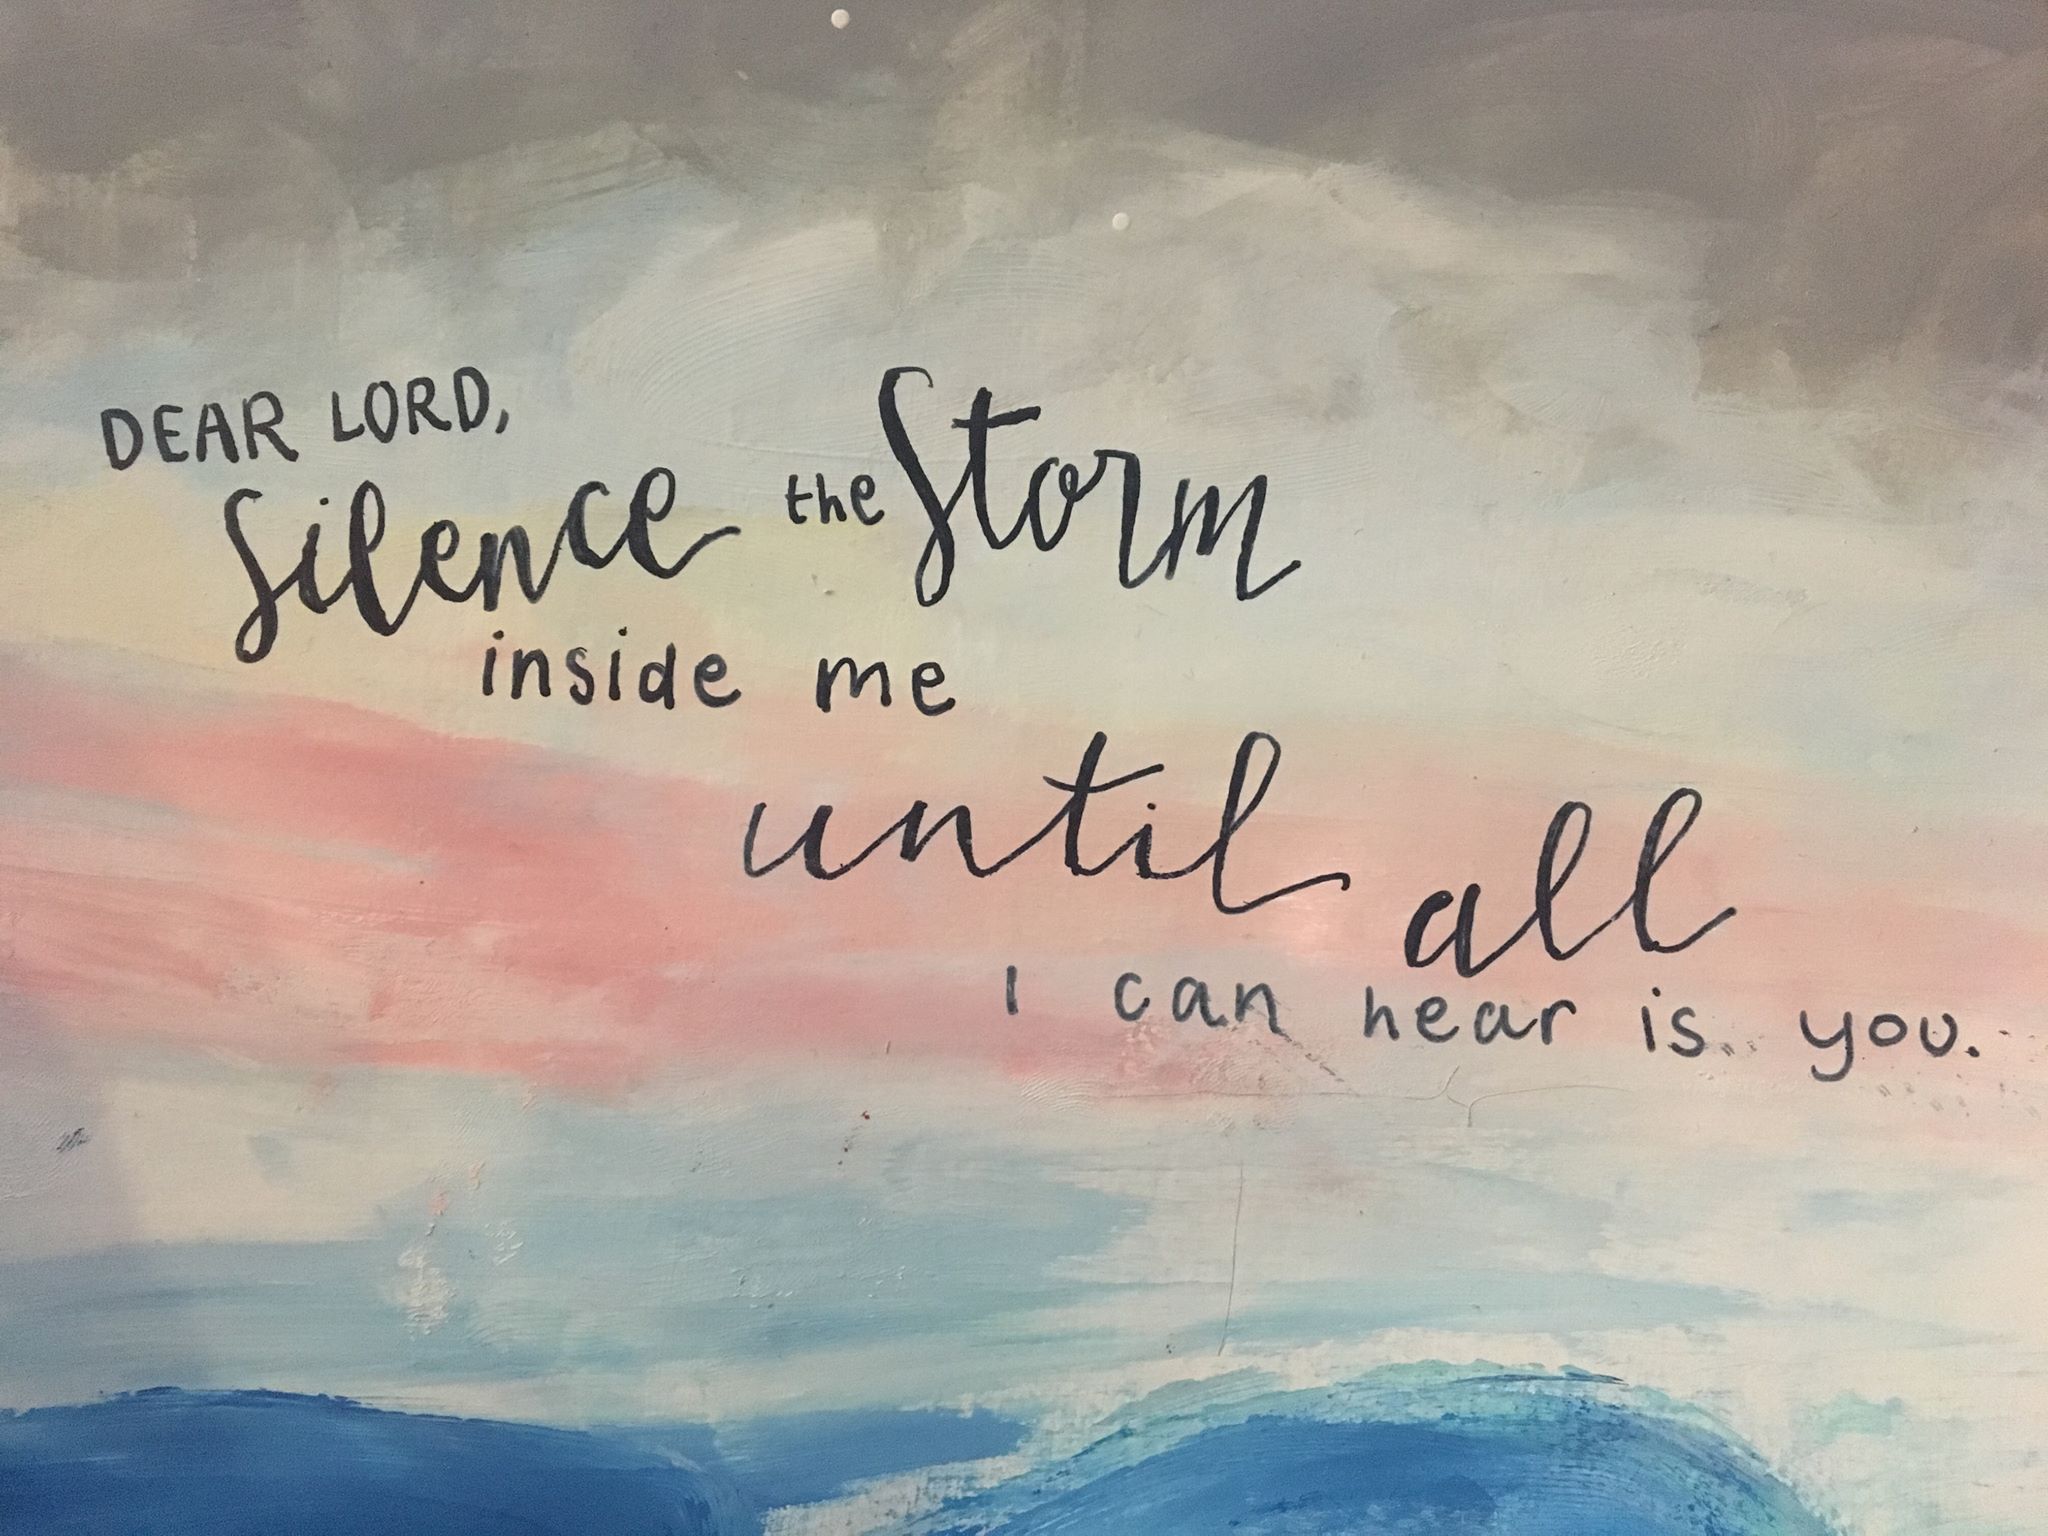 DEAR LORD,
Silence the Storm
inside me
until all
I can hear is you.